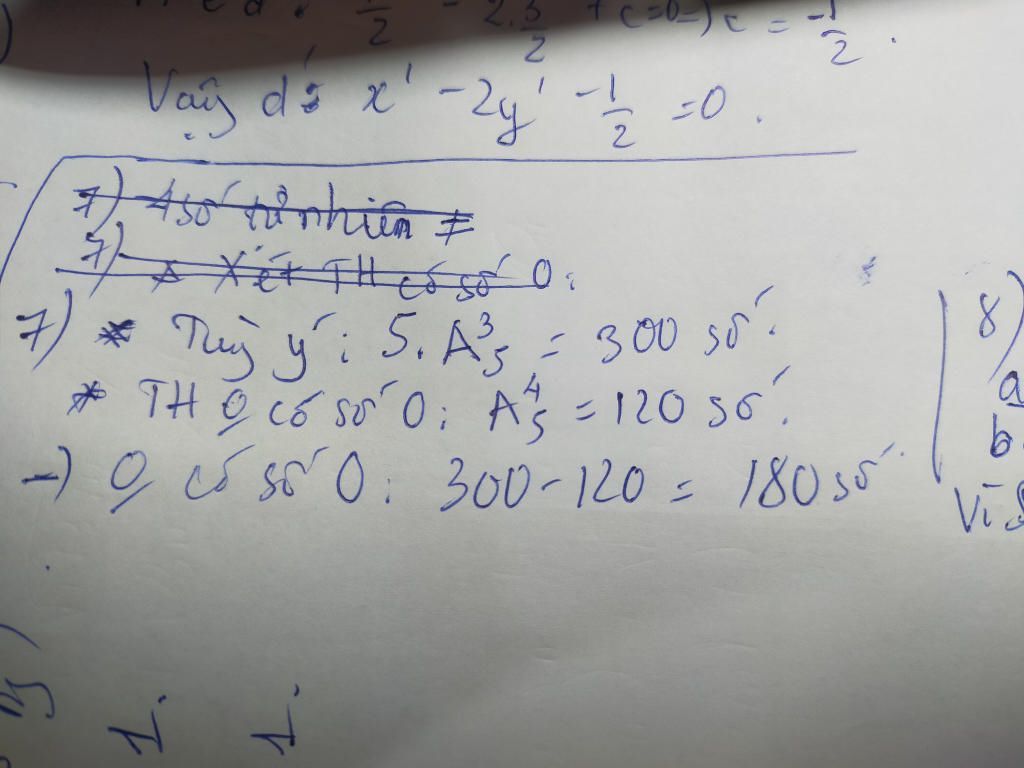 1/2 - 2.3/2 + c=0 -) c = -1/2.
Vậy d': x' - 2y' - 1/2 =0.
7) 4 số tự nhiên ≠
7) * Xét TH có số 0:
7) * Tuỳ ý: 5.A³₅ = 300 số.
* TH O̲ có số 0: A⁴₅ = 120 số.
-) O̲ có số 0: 300 - 120 = 180 số
8)
a
b.
Vì